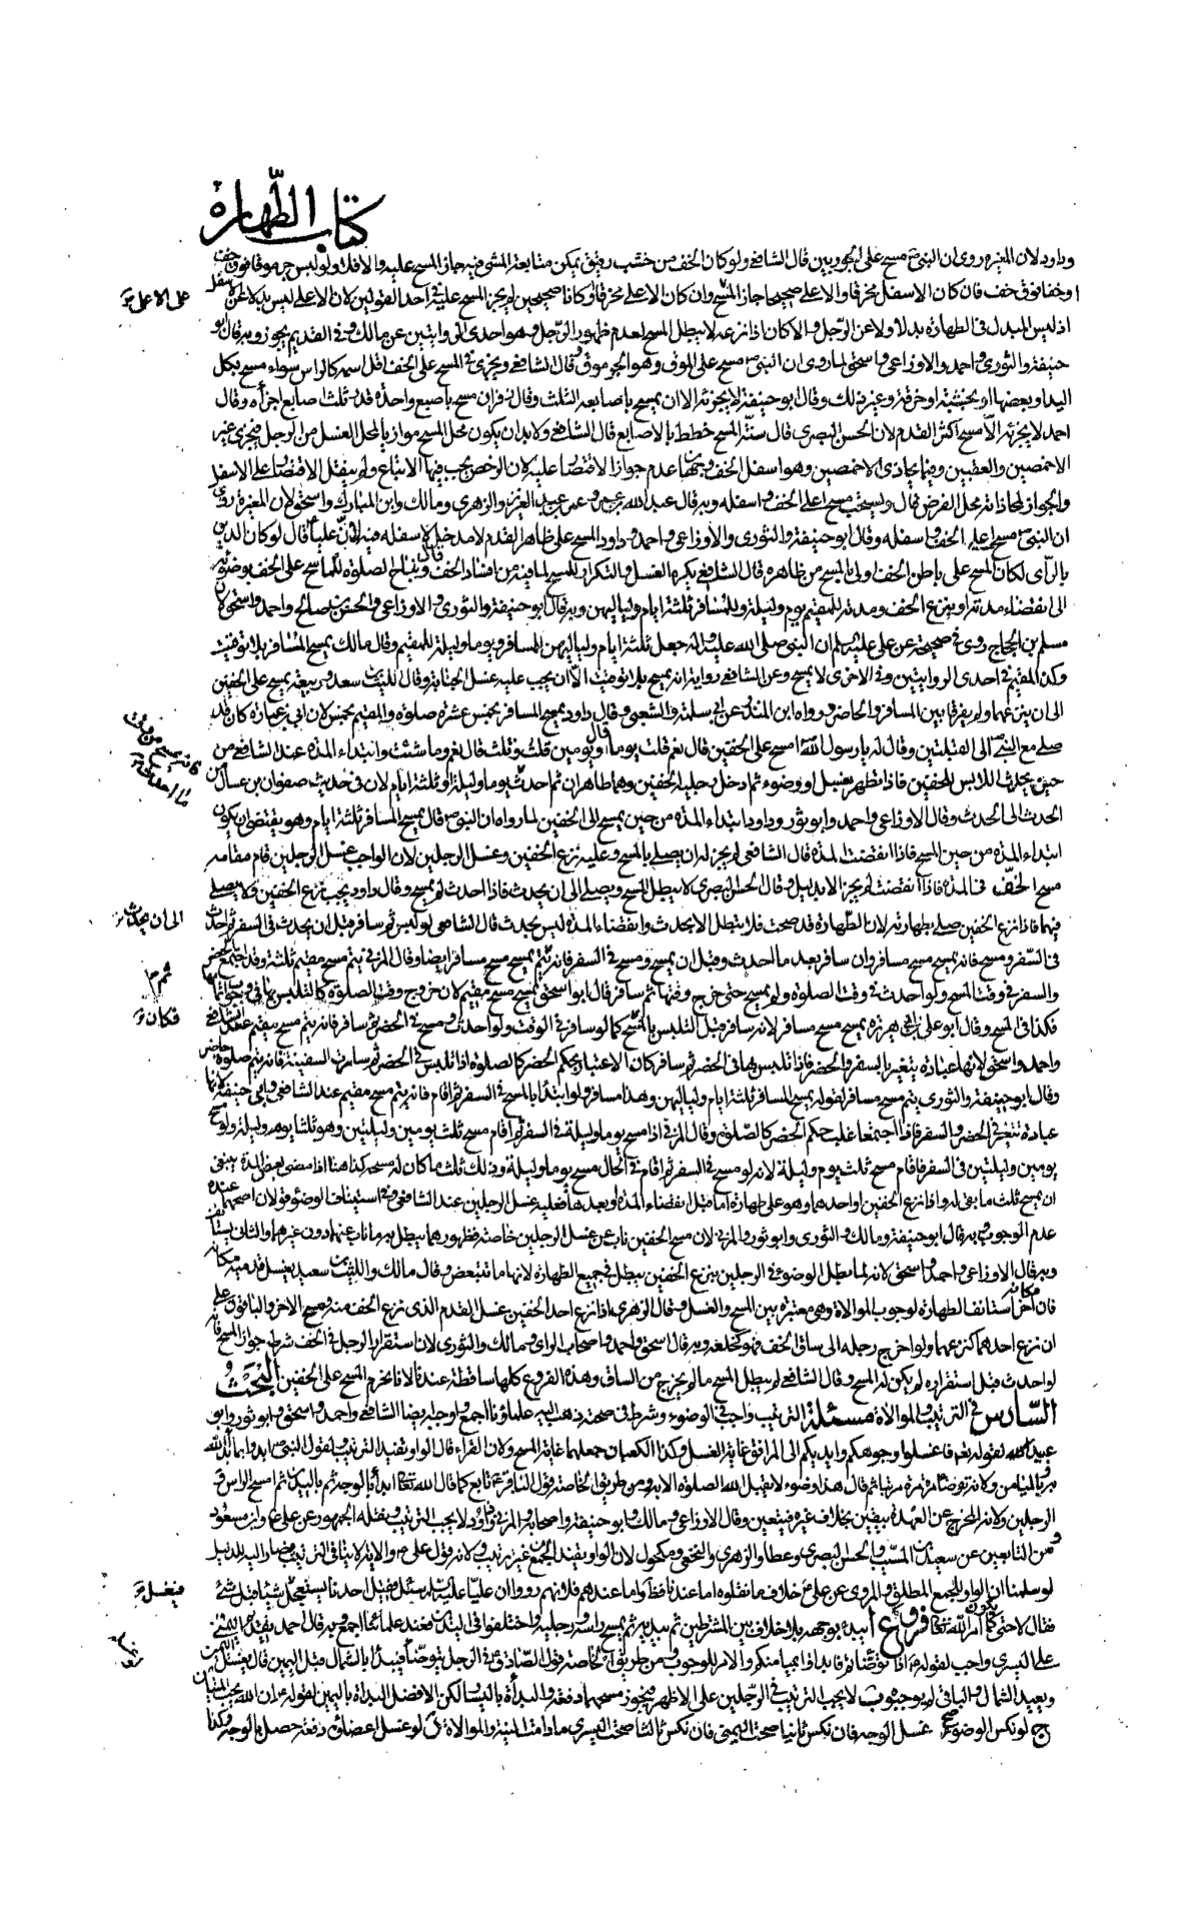 كتاب الطهارة
وداود لان المغيرة روى ان النبي ص مسح على الجوربين قال الشافعي ولو كان الخف من خشب رقيق يمكن متابعة المشي فيه جاز المسح عليه والا فلا ولو لبس جرموقا فوق خف
او خفا فوق خف فان كان الاسفل مخرقا والاعلى صحيحا جاز المسح وان كان الاعلى مخرقا او كانا صحيحين لم يجز المسح عليه في احد القولين لان الاعلى ليس بدلا عن الاسفل
على الاعلى
اذ ليس للمبدل في الطهارة بدلا ولا عن الرجل والا لكان اذا نزعه لا يبطل المسح لعدم ظهور الرجل وهو احدى الروايتين عن مالك وفي القديم يجوز وبه قال ابو
حنيفة والثوري واحمد والاوزاعي واسحق لما روي ان النبي ص مسح على الموق وهو الجرموق وقال الشافعي ويجزي في المسح على الخف اقل اسمه كالراس سواء مسح بكل
اليد او بعضها او بخشبة او خرقة وغير ذلك وقال ابو حنيفة لا يجزئه الا ان يمسح باصابعه الثلث وقال زفر ان مسح باصبع واحدة قدر ثلث اصابع اجزأه وقال
احمد لا يجزئه الا مسح اكثر القدم لان الحسن البصري قال سنة المسح خطط بالاصابع قال الشافعي ولا بد ان يكون محل المسح موازيا لمحل الغسل من الرجل فيجزي غير
الاخمصين والعقبين وفيما يحاذي الاخمصين وهو اسفل الخف وجهان عدم جواز الاقتصار عليه لان الرخص يجب فيها الاتباع ولم ينقل الاقتصار على الاسفل
والجواز لمحاذاته محل الفرض قال ويستحب مسح اعلى الخف واسفله وبه قال عبد الله بن عمر وعمر بن عبد العزيز والزهري ومالك وابن المبارك واسحق لان المغيرة روى
ان النبي ص مسح اعلى الخف واسفله وقال ابو حنيفة والثوري والاوزاعي واحمد وداود المسح على ظاهر القدم لا مدخل لاسفله فيه لان عليا ع قال لو كان الدين
بالرأى لكان المسح على باطن الخف اولى بالمسح من ظاهره قال الشافعي يكره الغسل والتكرار للمسح لما فيه من افساد الخف وتباح الصلوة للماسح على الخف بوضوئه
الى انقضاء مدته او ينزع الخف ومدته للمقيم يوم وليلة وللمسافر ثلثة ايام ولياليهن وبه قال ابو حنيفة والثوري والاوزاعي والحسن بن صالح واحمد واسحق لان
مسلم بن الحجاج روى في صحيحه عن علي عليه السلم ان النبي صلى الله عليه وآله جعل ثلثة ايام ولياليهن للمسافر ويوما وليلة للمقيم وقال مالك يمسح المسافر بلا توقيت
وكذا المقيم في احدى الروايتين وفي الاخرى لا يمسح وعن الشافعي رواية انه يمسح بلا توقيت الا ان يجب عليه غسل الجنابة وقال الليث بن سعد وربيعة يمسح على الخفين
الى ان ينزعهما ولم يفرقا بين المسافر والحاضر ورواه ابن المنذر عن ابي سلمة والشعبي وقال داود يمسح المسافر بخمس عشرة صلوة والمقيم بخمس لان ابي بن عمارة كان قد
صلى مع النبي ص الى القبلتين وقال له يا رسول الله امسح على الخفين قال نعم قلت يوما قال ويومين قلت وثلث قال نعم وما شئت وابتداء المدة عند الشافعي من
حين يحدث اللابس للخفين فاذا تطهر بغسل او وضوء ثم ادخل رجليه الخفين وهما طاهران ثم احدث يوما وليلة او ثلثة ايام لان في حديث صفوان بن عسال من
الحدث الى الحدث وقال الاوزاعي واحمد وابو ثور وداود ابتداء المدة من حين يمسح الى الخفين لما رواه ان النبي ص قال يمسح المسافر ثلثة ايام وهو يقتضي ان يكون
ابتداء المدة من حين المسح فاذا انقضت المدة قال الشافعي لم يجز له ان يصلي بالمسح وعليه نزع الخفين وغسل الرجلين لان الواجب غسل الرجلين قام مقامه
مسح الخف في المدة فاذا انقضت لم يجز الا بدليل وقال الحسن البصري لا يبطل المسح ويصلي الى ان يحدث فاذا احدث لم يمسح وقال داود يجب نزع الخفين ولا يصلي
فيهما فاذا نزع الخفين صلى بطهارته لان الطهارة قد صحت فلا تبطل الا بحدث وانقضاء المدة ليس بحدث قال الشافعي لو لبس ثم سافر قبل ان يحدث في السفر ثم احدث
الى ان يحدث
في السفر ومسح فانه يمسح مسح مسافر وان سافر بعد ما احدث وقبل ان يمسح ومسح في السفر فانه يتم يمسح مسح مسافر ايضا وقال المزني يتم مسح مقيم
والسفر في وقت المسح ولو احدث في وقت الصلوة ولم يمسح حتى خرج وقتها ثم سافر قال ابو اسحق يمسح مسح مقيم لان خروج وقت الصلوة كالتلبس بها في وجوب اتمامها
فكذا في المسح وقال ابو علي بن ابي هريرة يمسح مسح مسافر لانه سافر قبل التلبس بالمسح كما لو سافر في الوقت ولو احدث ومسح في الحضر ثم سافر فانه يتم مسح مقيم عند الشافعي
فكان
واحمد واسحق لانها عبادة يتغير بالسفر والحضر فاذا تلبس بها في الحضر ثم سافر كان الاعتبار بحكم الحضر كالصلوة اذا تلبس في الحضر ثم سارت السفينة فانه يتم صلوة حاضر
وقال ابو حنيفة والثوري يتم مسح مسافر لقوله يمسح المسافر ثلثة ايام ولياليهن وهذا مسافر ولو ابتدأ بالمسح في السفر ثم اقام فانه يتم مسح مقيم عند الشافعي وابي حنيفة لانها
عبادة تتغير في الحضر والسفر فاذا اجتمعا غلب حكم الحضر كالصلوة وقال المزني اذا مسح يوما وليلة في السفر ثم اقام مسح ثلث يومين وليلتين وهو ثلثا يوم وليلة ولو مسح
يومين وليلتين في السفر فاقام مسح ثلث يوم وليلة لانه لو مسح في السفر ثم اقام في الحال مسح يوما وليلة وذلك ثلث ما كان له مسحه كذا هنا اذا مضى بعض المدة ينبغي
ان يمسح ثلث ما بقي له واذا نزع الخفين او احدهما وهو على طهارة اما قبل انقضاء المدة او بعدها فعليه غسل الرجلين عند الشافعي وفي استيناف الوضوء قولان اصحهما عنده
عدم الوجوب وبه قال ابو حنيفة ومالك والثوري وابو ثور والمزني لان مسح الخفين ناب عن غسل الرجلين خاصة فظهورهما يبطل به ما ناب عنهما دون غيرهما والثاني يستأنف
وبه قال الاوزاعي واحمد واسحق لانه لما بطل الوضوء في الرجلين بنزع الخفين بطل في جميع الطهارة لانها ما تتبعض وقال مالك والليث بن سعد يغسل قدميه مكانه
فان اخر استانف الطهارة لوجوب الموالاة وهي معتبرة بين المسح والغسل وقال الزهري اذا نزع احد الخفين غسل القدم الذي نزع الخف منه ومسح الاخر والباقون على
ان نزع احدهما كنزعهما ولو اخرج رجله الى ساق الخف فهو كخلعه وبه قال اسحق واحمد واصحاب الراي ومالك والثوري لان استقرار الرجل في الخف شرط جواز المسح فانه
لو احدث قبل استقراره لم يكن له المسح وقال الشافعي لم يبطل المسح ما لم يخرج من الساق وهذه الفروع كلها ساقطة عندنا لانا نحرم المسح على الخفين البحث
السادس في الترتيب والموالاة مسئلة الترتيب واجب في الوضوء وشرط في صحته ذهب اليه علماؤنا اجمع واوجبه ايضا الشافعي واحمد واسحق وابو ثور وابو
عبيد لقوله تعالى فاغسلوا وجوهكم وايديكم الى المرافق غاية الغسل وكذا الكعبان جعلهما غاية المسح ولان الفراء قال الواو تفيد الترتيب ولقول النبي ص ابدؤا بما بدأ الله
به وبالميامن ولانه توضأ مرة مرة مرتبا ثم قال هذا وضوء لا يقبل الله الصلوة الا به ومن طريق الخاصة قول الباقر ع تابع كما قال الله تعالى ابدأ بالوجه ثم باليدين ثم امسح الراس و
الرجلين ولانه المخرج عن العهدة بيقين بخلاف غيره فيتعين وقال الاوزاعي ومالك وابو حنيفة واصحابه والمزني وداود لا يجب الترتيب ونقله الجمهور عن علي ع وابن مسعود
ومن التابعين عن سعيد بن المسيب والحسن البصري وعطا والزهري والنخعي ومكحول لان الواو يفيد الجمع من غير ترتيب ولانه قول علي ع والاية لا ينافي الترتيب فيصار اليه لدليل
لو سلمنا ان الواو للجمع المطلق والمروي عن علي ع خلاف ما نقلوه اما عندنا فظ واما عندهم فلانهم رووا ان عليا ع سئل فقيل احدنا يستعجل فيغسل شيئا قبل شئ
فيغسل
فقال لا حتى يكون كما امر الله تعالى فروع ا يبدء بوجهه بلا خلاف بين المشترطين ثم بيديه ثم يمسح راسه ورجليه واختلفوا في اليدين فعند علمائنا اجمع وبه قال احمد تقديم اليمنى
على اليسرى واجب لقوله ع اذا توضأتم فابدأوا بميامنكم والامر للوجوب ومن طريق الخاصة قول الصادق ع في الرجل يتوضأ فيبدأ بالشمال قبل اليمين قال يغسل اليمين
ويعيد الشمال والباقي لم يوجبوه ب لا يجب الترتيب في الرجلين على الاظهر فيجوز مسحهما دفعة والبدأة باليسرى لكن الافضل البدأة باليمين لقوله ع ان الله يحب التيامن
ج لو نكس الوضوء صح غسل الوجه فان نكس ثانيا صحت اليمنى فان نكس ثالثا صحت اليسرى ما دامت النية والموالاة د لو غسل اعضاؤه دفعة حصل بالوجه وكذا